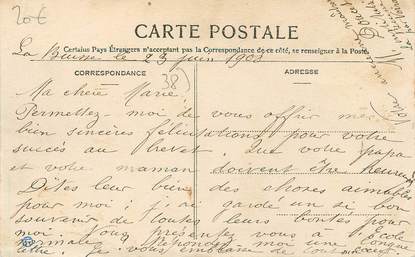 20€
CARTE POSTALE
Certains Pays Étrangers n'acceptant pas la Correspondance de ce côté, se renseigner à la Poste.
La Buisse le 23 juin 1908
CORRESPONDANCE
ADRESSE
(38)
Ma chère Marie
Permettez-moi de vous offrir mes
bien sincères félicitations pour votre
succès au brevet Que votre papa
et votre maman doivent être heureux
Dites leur bien des choses aimables
pour moi; j'ai gardé un si bon
souvenir de toutes leurs bontés pour
moi. Vous présentez vous à l'École
normale? Répondez moi une longue
lettre. Je vous embrasse de tout